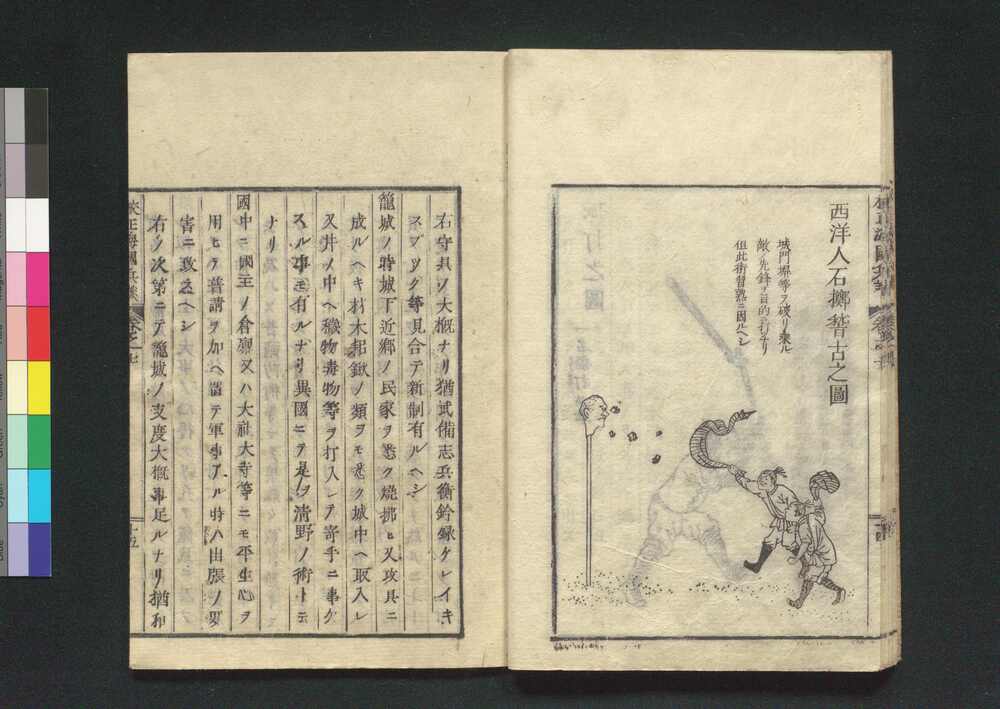 西洋人石擲稽古之圖
城門塀等ヲ破リ乗ル
敵ノ先鋒ヲ目的ニ打ナリ
但此術習熟ニ因ルヘシ
右守具ノ大概ナリ猶武備志兵衡鈐録クレイキ
スブック等見合テ新制有ルヘシ
籠城ノ時城下近郷ノ民家ヲ悉ク燒拂ヒ又攻具ニ
成ルヘキ材木鋤鍬ノ類ヲモ悉ク城中ヘ取入レ
又井ノ中ヘ穢物毒物等ヲ打入レテ寄手ニ事ヲ
スル事モ有ルナリ異國ニテ是ヲ清野ノ術ト云
ナリ
國中ニ國主ノ倉廩又ハ大社大寺等ニモ平生心ヲ
用ヒテ普請ヲ加ヘ置テ軍事アル時ハ出張ノ要
害ニ致スヘシ
右ノ次第ニテ籠城ノ支度大概事足ルナリ猶和